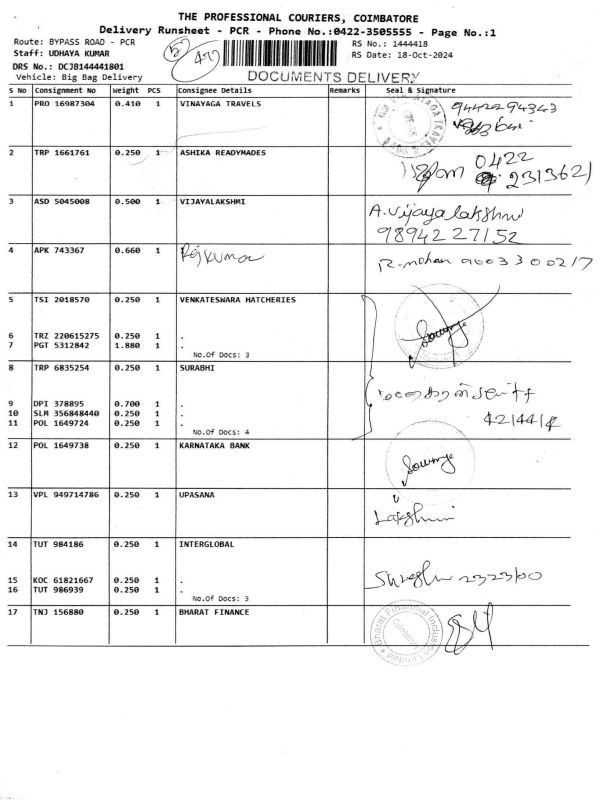 THE PROFESSIONAL COURIERS, COIMBATORE
Delivery Runsheet - PCR - Phone No.:0422-3505555 - Page No.:1
Route: BYPASS ROAD - PCR
Staff: UDHAYA KUMAR
DRS No.: DCJB144441801
Vehicle: Big Bag Delivery
RS No.: 1444418
RS Date: 18-Oct-2024
DOCUMENTS DELIVERY
S No Consignment No Weight PCS Consignee Details Remarks Seal & Signature
1 PRO 16987304 0.410 1 VINAYAGA TRAVELS 9442294343
2 TRP 1661761 0.250 1 ASHIKA READYMADES 0422
2313621
3 ASD 5045008 0.500 1 VIJAYALAKSHMI A.Vijayalakshmi
9894227152
4 APK 743367 0.660 1 Rajkumar R.mohan 9003300217
5 TSI 2018570 0.250 1 VENKATESWARA HATCHERIES Sowmya
6 TRZ 220615275 0.250 1 .
7 PGT 5312842 1.880 1 .
No.Of Docs: 3
8 TRP 6835254 0.250 1 SURABHI
9 DPI 378895 0.700 1 .
10 SLM 356848440 0.250 1 .
11 POL 1649724 0.250 1 . 4214414
No.Of Docs: 4
12 POL 1649738 0.250 1 KARNATAKA BANK Sowmya
13 VPL 949714786 0.250 1 UPASANA Lakshmi
14 TUT 984186 0.250 1 INTERGLOBAL
15 KOC 61821667 0.250 1 . 232300
16 TUT 986939 0.250 1 .
No.Of Docs: 3
17 TNJ 156880 0.250 1 BHARAT FINANCE Bharat Financial Inclusion Limited